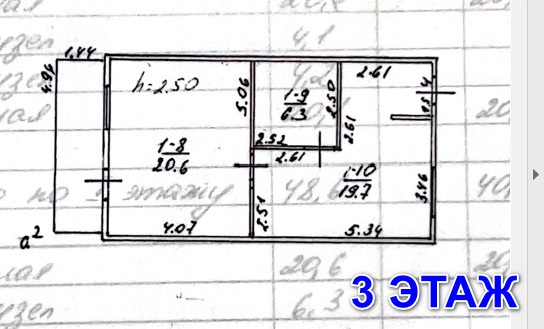 узел 4,1
1.44
4.96
h=2.50
5.06
4,2
1-9
6.3
2.50
2.61
1-8
20.6
2.52
2.61
2.61
1-10
19.7
этажу 48,6 40,
2.51
3.46
4.07
5.34
a²
ная 20,6 20,
узел 6,3
3 ЭТАЖ